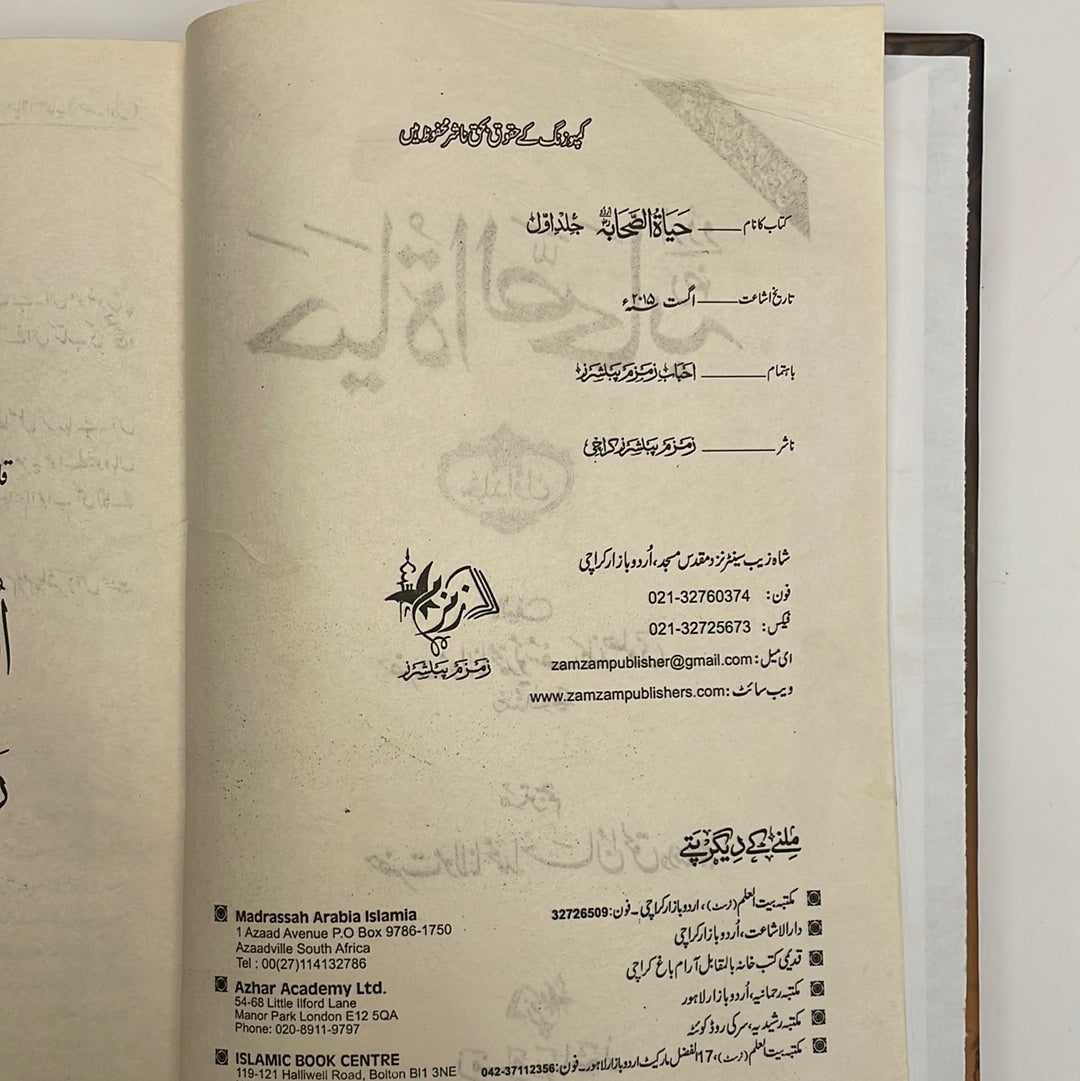 کمپوزنگ کے حقوق بحق ناشر محفوظ ہیں
کتاب کا نام ــــــ حَیَاۃُ الصَّحَابَہ جُلدِ اوّل
تاریخ اشاعت ــــــ اگست ۲۰۱۵ء
باہتمام ــــــ احباب زمزم پبلشرز
ناشر ــــــ زمزم پبلشرز کراچی
شاہ زیب سینٹر نزد مقدس مسجد، اُردو بازار کراچی
فون: 021-32760374
فیکس: 021-32725673
ای میل: zamzampublisher@gmail.com
ویب سائٹ: www.zamzampublishers.com
زمزم
زمزم پبلشرز
ملنے کے دیگر پتے
مکتبہ بیت العلم (ٹرسٹ)، اردو بازار کراچی ۔ فون: 32726509
دارالاشاعت، اُردو بازار کراچی
قدیمی کتب خانہ بالمقابل آرام باغ کراچی
مکتبہ رحمانیہ، اُردو بازار لاہور
مکتبہ رشیدیہ، سرکی روڈ کوئٹہ
مکتبہ بیت العلم (ٹرسٹ)، 17 الفضل مارکیٹ اردو بازار لاہور ۔ فون: 042-37112356
Madrassah Arabia Islamia
1 Azaad Avenue P.O Box 9786-1750
Azaadville South Africa
Tel : 00(27)114132786
Azhar Academy Ltd.
54-68 Little Ilford Lane
Manor Park London E12 5QA
Phone: 020-8911-9797
ISLAMIC BOOK CENTRE
119-121 Halliwell Road, Bolton Bl1 3NE